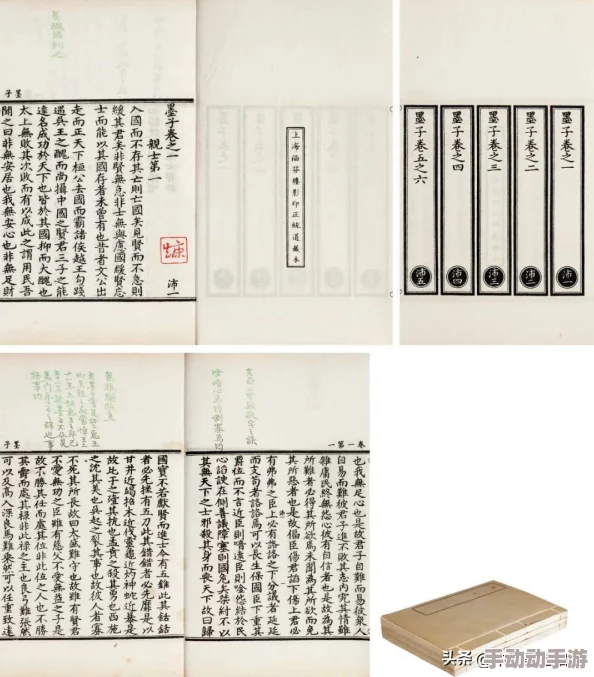 墨子
墨子卷之一
親士第一
沛一
入國而不存其士則亡國矣見賢而不急則
緩其君矣非賢無急非士無與慮國緩賢忘
士而能以其國存者未曾有也昔者文公出
走而正天下桓公去國而霸諸侯越王勾踐
遇吳王之醜而尚攝中國之賢君三子之能
達名成功於天下也皆於其國抑而大醜也
太上無敗其次敗而有以成此之謂用民吾
聞之曰非無安居也我無安心也非無足財
上海涵芬樓影印正統道藏本
墨子卷之一 沛一
墨子卷之二 沛二
墨子卷之三 沛三
墨子卷之四 沛四
墨子卷五之六 沛五
卷一第一
也我無足心也是故君子自難而易彼衆人
自易而難彼君子進不敗其志内究其情雖
雜庸民終無怨心彼有自信者也是故為其
所難者必得其所欲焉未聞為其所欲而免
其所惡者也是故偪臣傷君諂下傷上君必
有弗弗之臣上必有詻詻之下分議者延延
而支苟者詻詻焉可以長生保國臣下重其
爵位而不言近臣則喑遠臣則唫怨結於民
心諂諛在側善議障塞則國危矣桀紂不以
其無天下之士邪殺其身而喪天下故曰歸
墨子
國寶不若獻賢而進士今有五錐此其銛銛
者必先挫有五刀此其錯錯者必先靡是以
甘井近竭招木近伐靈龜近灼神蛇近暴是
故比干之殪其抗也孟賁之殺其勇也西施
之沈其美也吳起之裂其事也故彼人者寡
不死其所長故曰太盛難守也故雖有賢君
不愛無功之臣雖有慈父不愛無益之子是
故不勝其任而處其位非此位之人也不勝
其爵而處其禄非此禄之主也良弓難張然
可以及高入深良馬難乘然可以任重致遠
头条 @
手动动手游